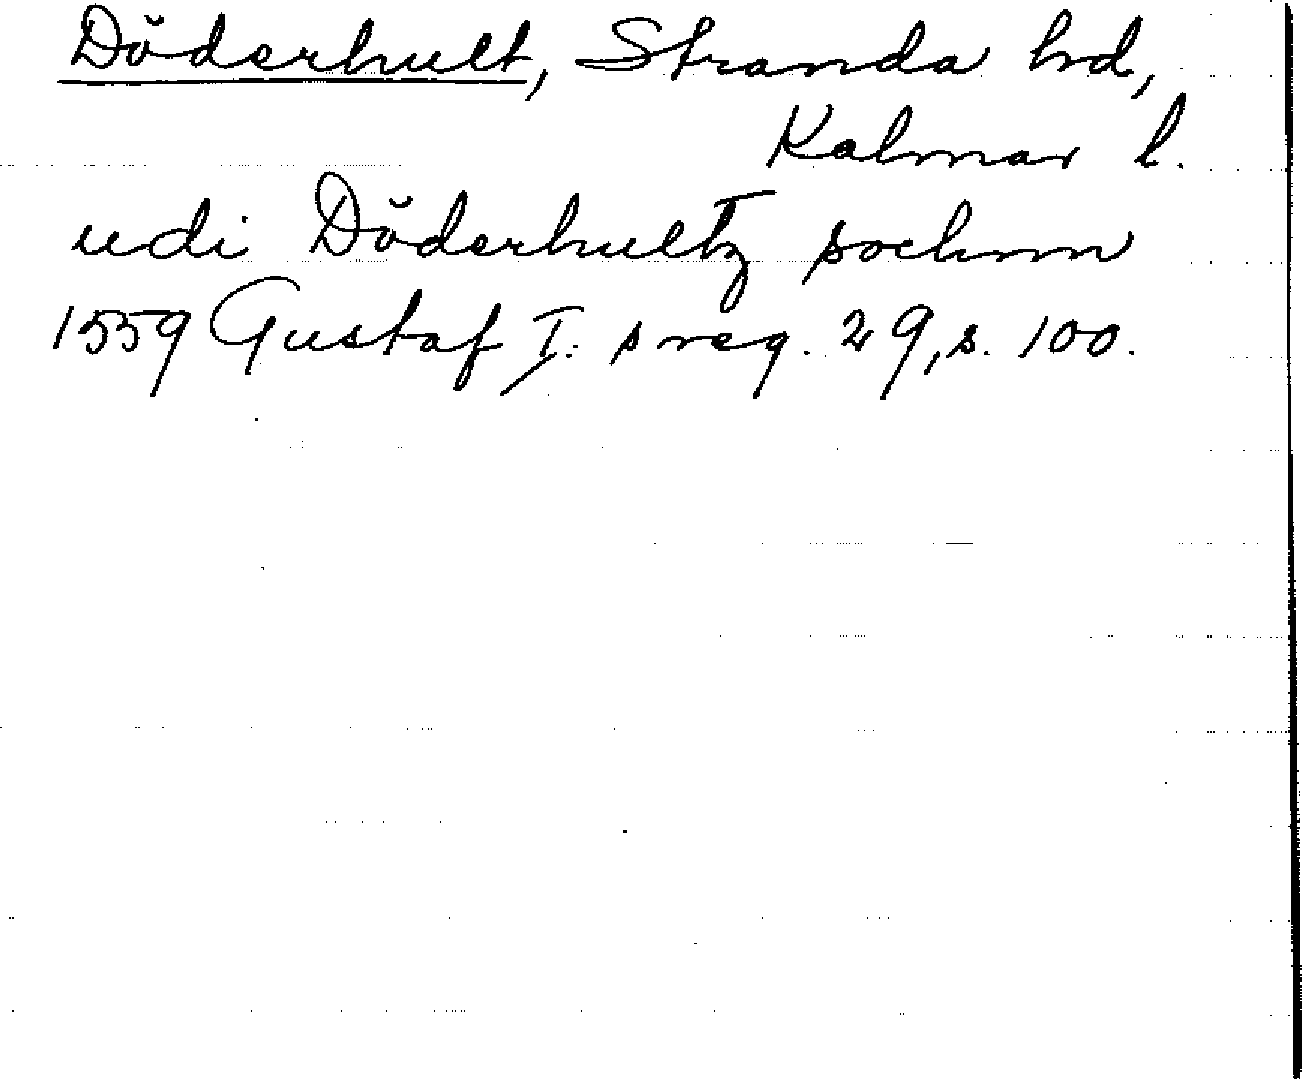 Döderhult, Stranda hd,
Kalmar l.
udi Döderhultz sochnn
1559 Gustaf I:s reg. 29, s. 100.